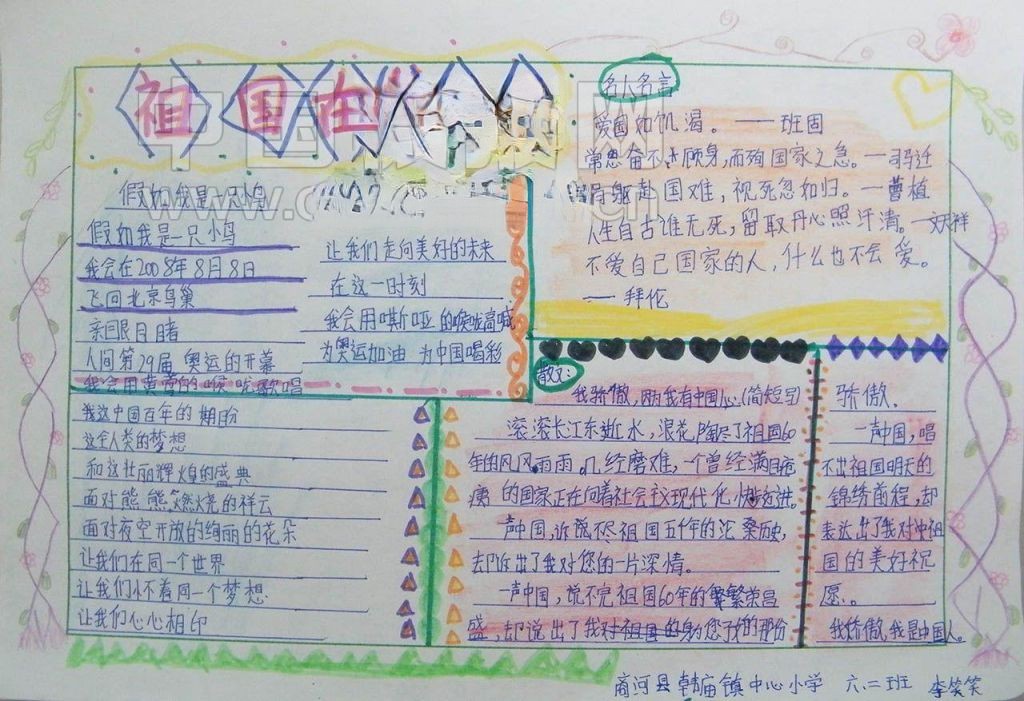 祖国在
假如我是一只小鸟
假如我是一只小鸟
我会在2008年8月8日
飞回北京鸟巢
亲目睹
人间第29届 奥运的开幕
我会用黄莺的喉咙歌唱
我这中国百年的期盼
这全人类的梦想
和这壮丽辉煌的盛典
面对熊熊燃烧的祥云
面对夜空开放的绚丽的花朵
让我们在同一个世界
让我们怀着同一个梦想
让我们心心相印
让我们走向美好的未来
在这一时刻
我会用嘶哑的喉咙高喊
为奥运加油 为中国喝彩
名人名言
爱国如饥渴。——班固
常思奋不顾身,而殉国家之急。—司马迁
捐躯赴国难,视死忽如归。—曹植
人生自古谁无死,留取丹心照汗清。—文天祥
不爱自己国家的人,什么也不会爱。
——拜伦
散文:
我骄傲,因为我有中国心(简短写)
滚滚长江东逝水,浪花陶尽了祖国60
年的风风雨雨。几经磨难,一个曾经满目疮
痍的国家正在向着社会主义现代化快步迈进。
一声中国,诉说不尽祖国五千年的沧桑历史,
却诉出了我对您的一片深情。
一声中国,说不完祖国60年的繁荣昌
盛,却说出了我对祖国的身为您子女的那份
骄傲.
一声中国,唱
不出祖国明天的
锦绣前程,却
表达出了我对中祖
国的美好祝
愿。
我骄傲,我是中国人。
商河县韩庙镇中心小学 六.二班 李笑笑
www.c